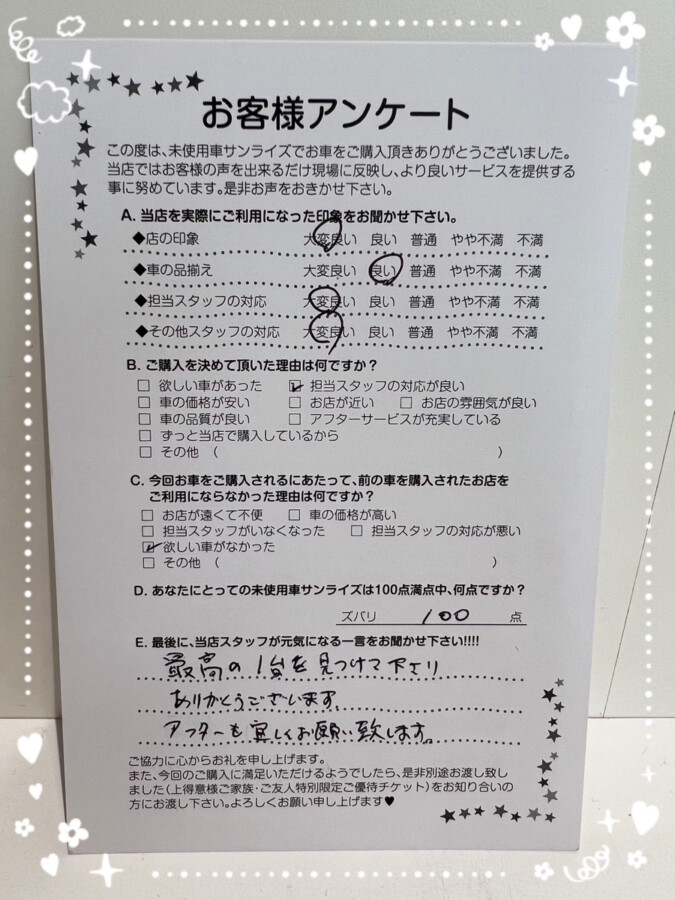 お客様アンケート
この度は、未使用車サンライズでお車をご購入頂きありがとうございました。
当店ではお客様の声を出来るだけ現場に反映し、より良いサービスを提供する
事に努めています。是非お声をおきかせ下さい。
A. 当店を実際にご利用になった印象をお聞かせ下さい。
◆店の印象 大変良い 良い 普通 やや不満 不満
◆車の品揃え 大変良い 良い 普通 やや不満 不満
◆担当スタッフの対応 大変良い 良い 普通 やや不満 不満
◆その他スタッフの対応 大変良い 良い 普通 やや不満 不満
B. ご購入を決めて頂いた理由は何ですか？
□ 欲しい車があった ☑ 担当スタッフの対応が良い
□ 車の価格が安い □ お店が近い □ お店の雰囲気が良い
□ 車の品質が良い □ アフターサービスが充実している
□ ずっと当店で購入しているから
□ その他 （ ）
C. 今回お車をご購入されるにあたって、前の車を購入されたお店を
ご利用にならなかった理由は何ですか？
□ お店が遠くて不便 □ 車の価格が高い
□ 担当スタッフがいなくなった □ 担当スタッフの対応が悪い
☑ 欲しい車がなかった
□ その他 （ ）
D. あなたにとっての未使用車サンライズは100点満点中、何点ですか？
ズバリ 100 点
E. 最後に、当店スタッフが元気になる一言をお聞かせ下さい!!!!
最高の1台を見つけて下さり
ありがとうございます。
アフターも宜しくお願い致します。
ご協力に心からお礼を申し上げます。
また、今回のご購入に満足いただけるようでしたら、是非別途お渡し致し
ました（上得意様ご家族・ご友人特別限定ご優待チケット）をお知り合いの
方にお渡し下さい。よろしくお願い申し上げます♥